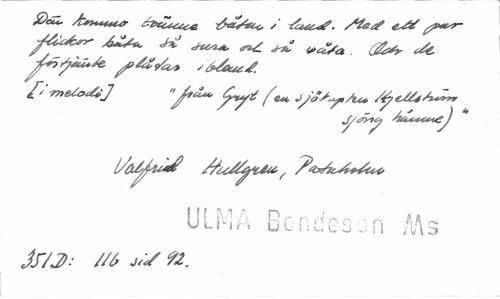 Där kommo tvänne båtar i land. Med ett par
flickor båta så sura och så våta. Och de
förtjänte plåtar ibland.
[i melodi] "från Gryt (en sjökapten Kjellström
sjöng henne)"
Valfrid Hullgren, Pataholm
ULMA Bondeson Ms
351D: 116 sid 92.